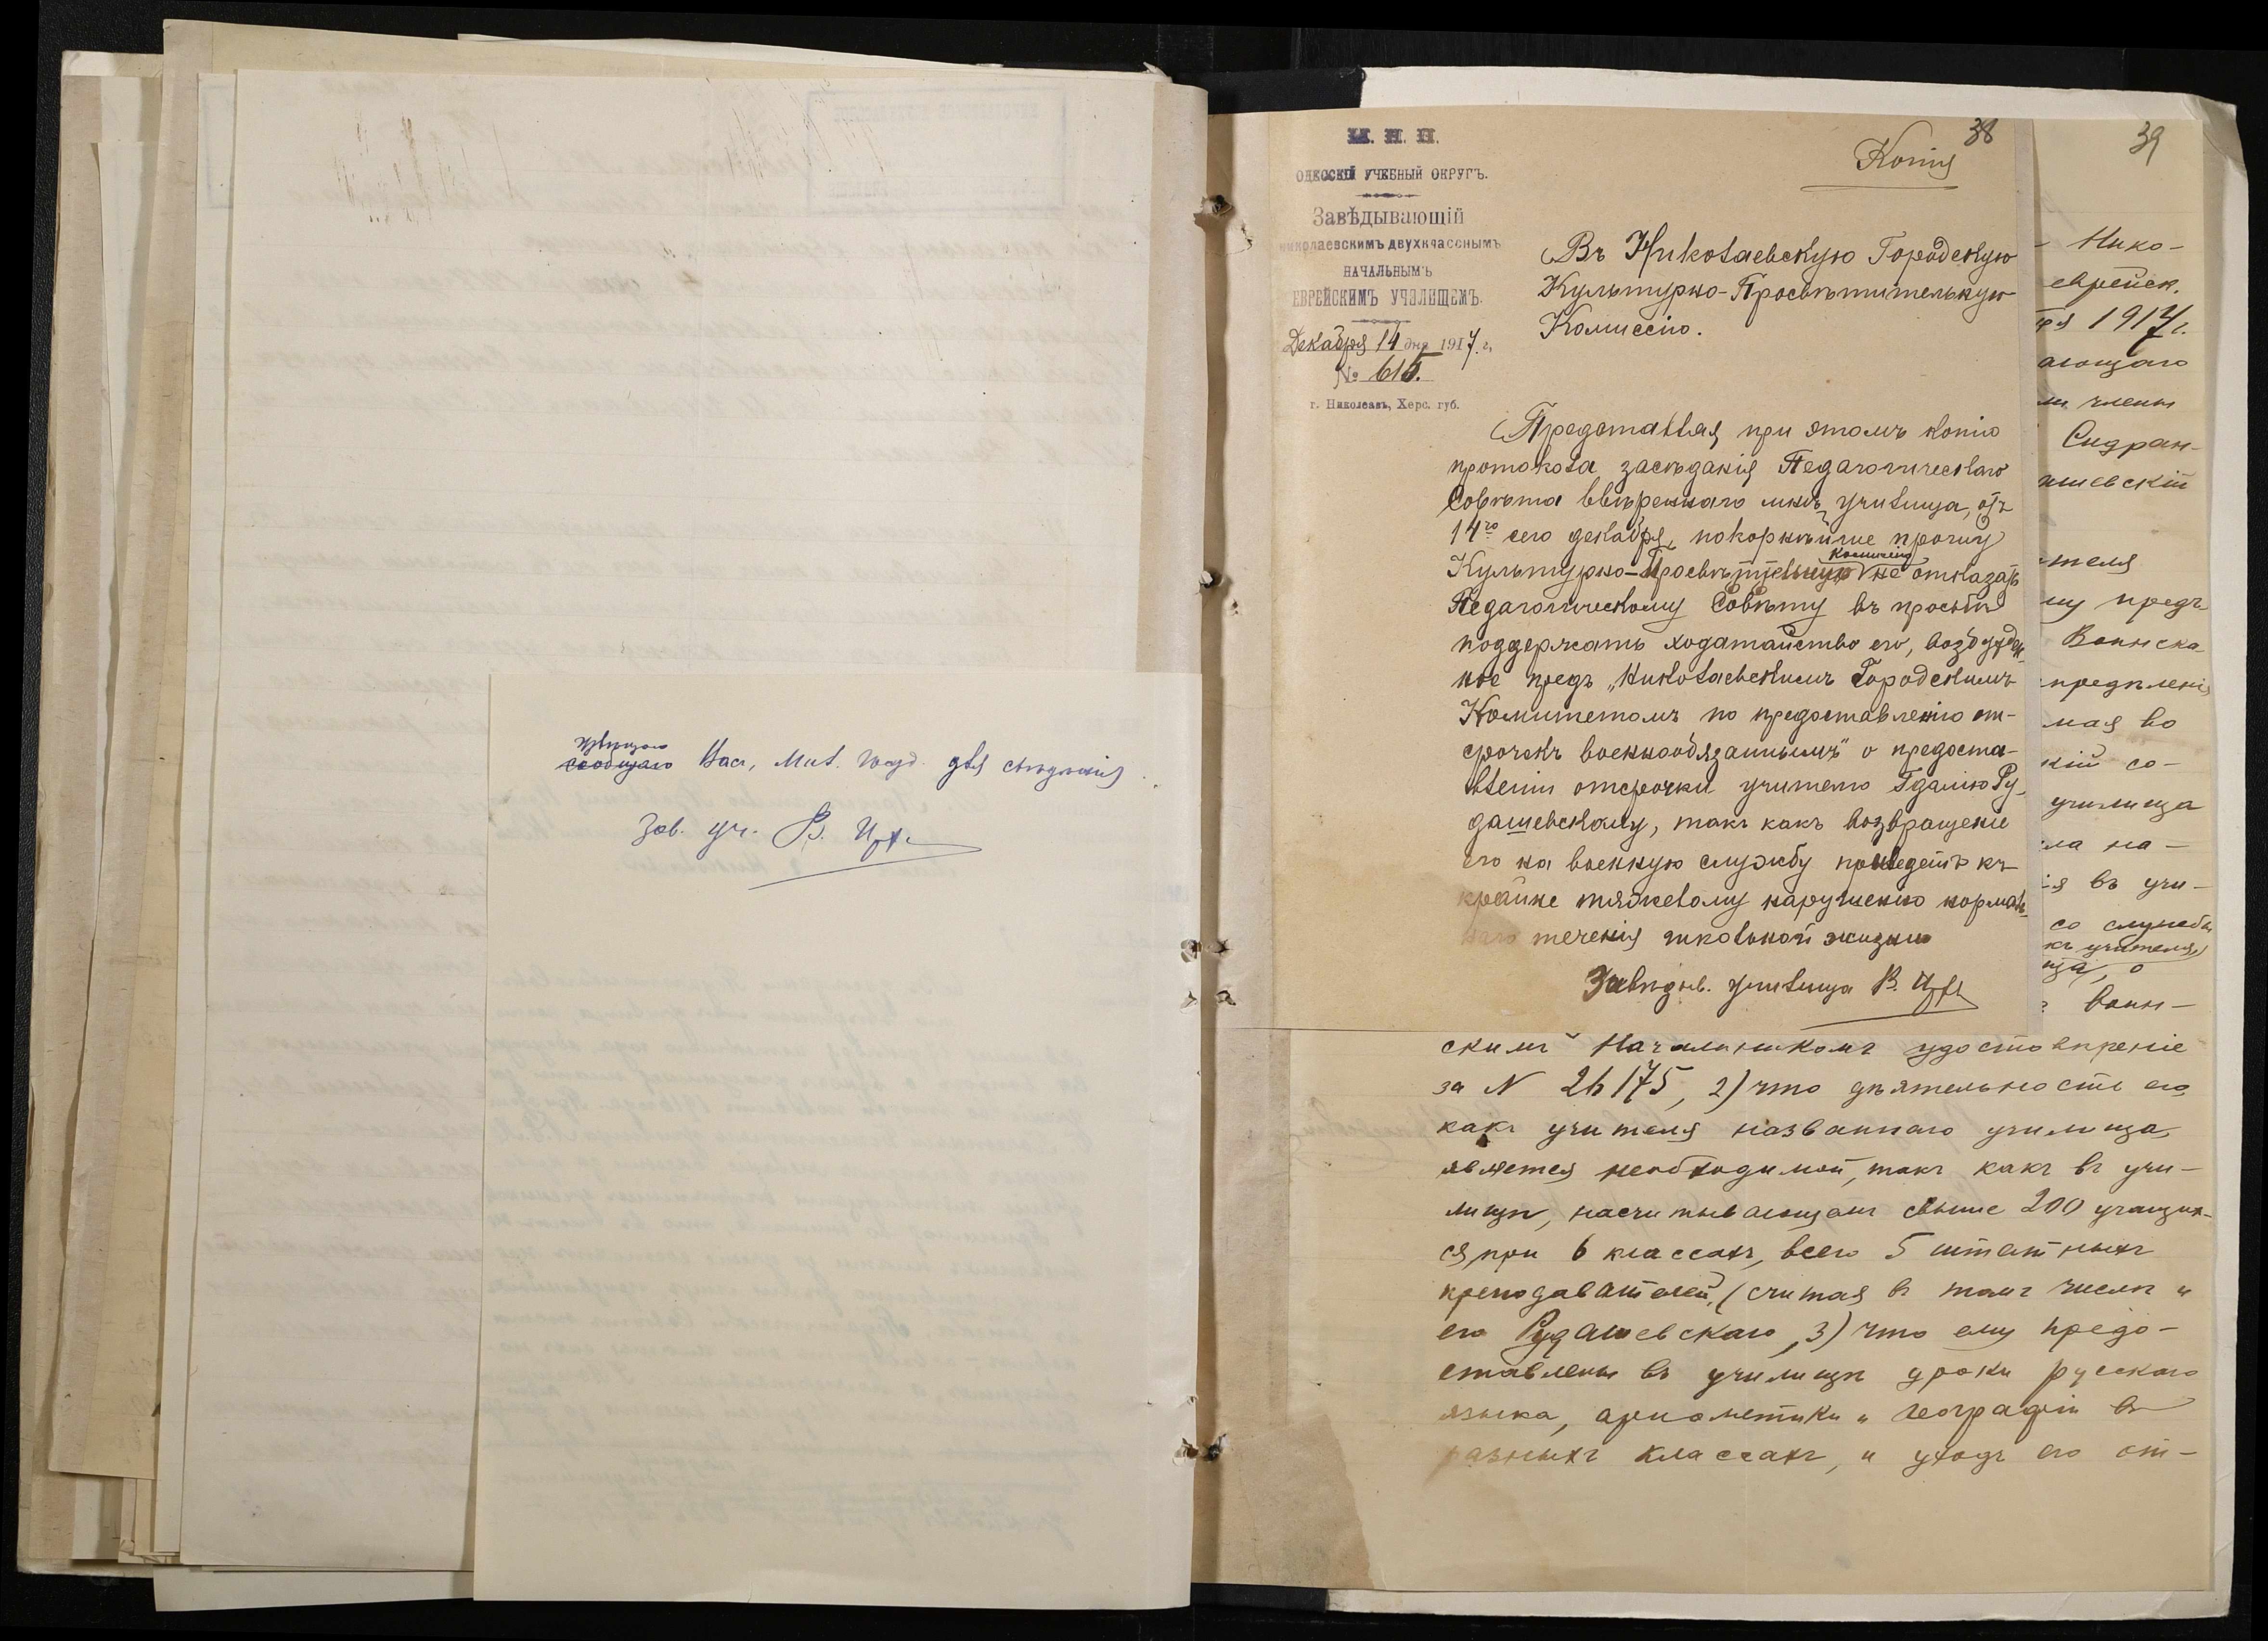 извѣщаю
сообщаю Вас, Мил. Госуд. для свѣдѣнія.
Зав. уч. В.
38
Копія
М. Н. П.
ОДЕССКІЙ УЧЕБНЫЙ ОКРУГЪ.
Завѣдывающій
николаевскимъ двухкласснымъ
НАЧАЛЬНЫМЪ
ЕВРЕЙСКИМЪ УЧИЛИЩЕМЪ.
Декабря 14 дня 1917 г.
№ 615.
г. Николаевъ, Херс. губ.
Въ Николаевскую Городскую
Культурно-Просвѣтительную
Комиссію.
Представляя при этомъ копію
протокола засѣданія Педагогическаго
Совѣта ввѣреннаго мнѣ училища, отъ
14го сего декабря, покорнѣйше прошу
Культурно-Просвѣтительную комиссію не отказать
Педагогическому Совѣту въ просьбѣ
поддержать ходатайство его, возбужден-
ное предъ „Николаевскимъ Городскимъ
Комитетомъ по предоставленію от-
срочекъ военнообязаннымъ" о предоста-
вленіи отсрочки учителю Гдалію Ру-
дашевскому, такъ какъ возвращеніе
его на военную службу приведетъ къ
крайне тяжелому нарушенію нормаль-
наго теченія школьной жизни
Завѣдыв. училища В.
39
- Нико-
еврейск.
ря 1917 г.
ающаго
ли члены
Сидран-
шевскій
теля
му предъ
Воинска
предѣленія
мая во
кій со-
училища
ла на-
ія въ учи-
со службы
къ учителя,
ща, о
воин-
скимъ Начальникомъ удостовѣреніе
за N 26175, 2) что дѣятельность его,
какъ учителя названнаго училища,
является необходимой, такъ какъ въ учи-
лищѣ, насчитывающемъ свыше 200 учащих-
ся, при 6 классахъ, всего 5 штатныхъ
преподавателей, (считая въ томъ числѣ и
его Рудашевскаго, 3) что ему предо-
ставлены въ училищѣ уроки русскаго
языка, ариѳметики и географіи въ
разныхъ классахъ, и уходъ его от-